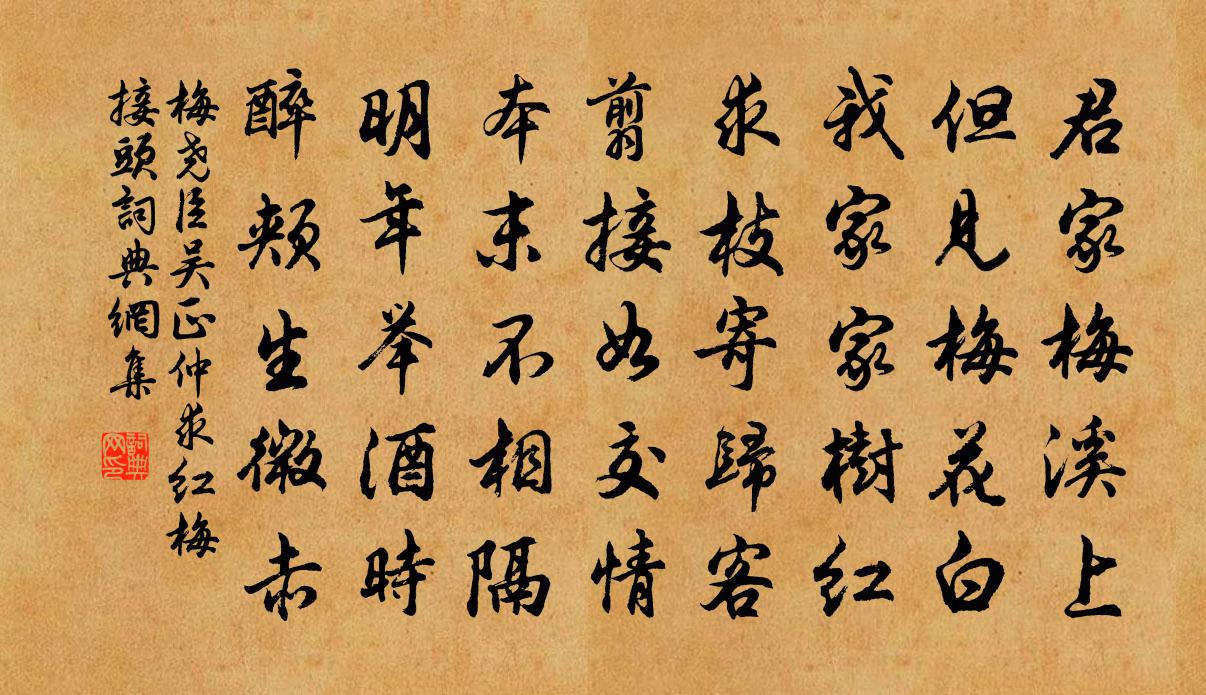 君家梅溪上
但見梅花白
我家家樹紅
求枝寄歸客
翦接如交情
本末不相隔
明年举酒時
醉頰生微赤
梅尧臣吴正仲求红梅
接頭詞典網集
詞典
网印